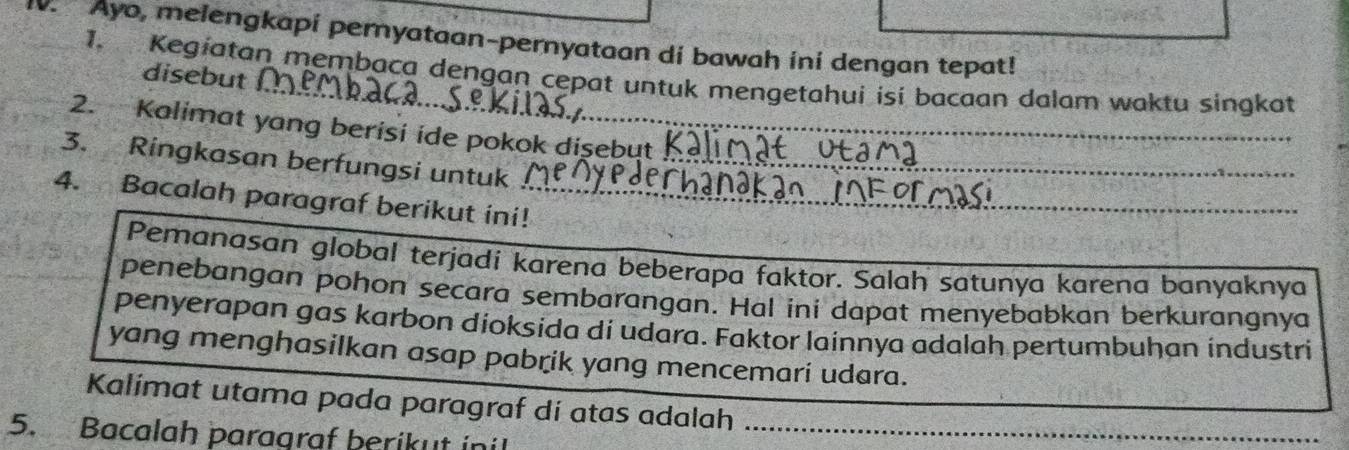 IV. Ayo, melengkapi pernyataan-pernyataan di bawah ini dengan tepat!
1. Kegiatan membaca dengan cepat untuk mengetahui isi bacaan dalam waktu singkat
disebut membaca sekilas,
2. Kalimat yang berisi ide pokok disebut Kalimat utama
3. Ringkasan berfungsi untuk menyederhanakan informasi
4. Bacalah paragraf berikut ini!
Pemanasan global terjadi karena beberapa faktor. Salah satunya karena banyaknya
penebangan pohon secara sembarangan. Hal ini dapat menyebabkan berkurangnya
penyerapan gas karbon dioksida di udara. Faktor lainnya adalah pertumbuhan industri
yang menghasilkan asap pabrik yang mencemari udara.
Kalimat utama pada paragraf di atas adalah
5. Bacalah paragraf berikut ini!